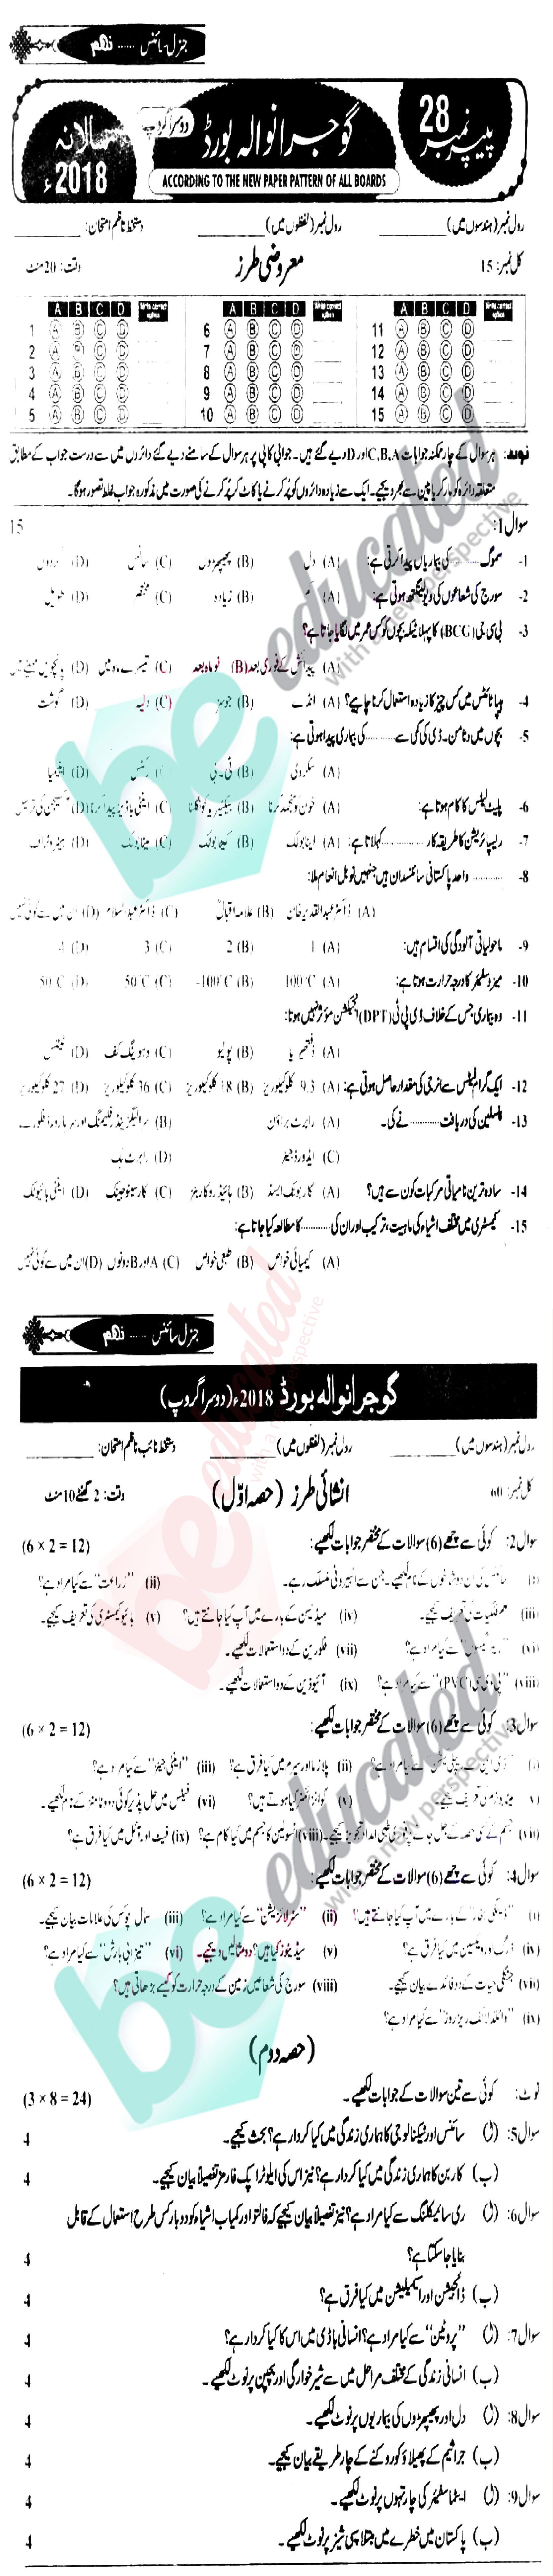 جنرل سائنس ...... نہم
سالانہ 2018ء
دوسرا گروپ
گوجرانوالہ بورڈ
پیپر نمبر 28
ACCORDING TO THE NEW PAPER PATTERN OF ALL BOARDS
رول نمبر (ہندسوں میں) ________ رول نمبر (لفظوں میں) ________ دستخط ناظم امتحان: ________
کل نمبر: 15 معروضی طرز وقت: 20 منٹ
A B C D Write correct option A B C D Write correct option A B C D Write correct option
1 A B C D 6 A B C D 11 A B C D
2 A B C D 7 A B C D 12 A B C D
3 A B C D 8 A B C D 13 A B C D
4 A B C D 9 A B C D 14 A B C D
5 A B C D 10 A B C D 15 A B C D
نوٹ: ہر سوال کے چار ممکنہ جوابات C,B,A اور D دیے گئے ہیں۔ جوابی کاپی پر ہر سوال کے سامنے دیے گئے دائروں میں سے درست جواب کے مطابق
متعلقہ دائرہ کو مارکر یا پین سے بھر دیجیے۔ ایک سے زیادہ دائروں کو پُر کرنے یا کاٹ کر پُر کرنے کی صورت میں مذکورہ جواب غلط تصور ہوگا۔
سوال 1: 15
1- سموگ ......... کی بیماریاں پیدا کرتی ہے: (A) دل (B) پھیپھڑوں (C) سانس (D)
2- سورج کی شعاعوں کی ویولینگتھ ہوتی ہے: (A) کم (B) زیادہ (C) مختصر (D) طویل
3- بی سی جی (BCG) کا پہلا ٹیکہ بچوں کو کس عمر میں لگایا جاتا ہے؟
(A) پیدائش کے فوری بعد (B) نو ماہ بعد (C) تیسرے ماہ میں (D) پانچویں مہینے میں
4- ہیپاٹائٹس میں کس چیز کا زیادہ استعمال کرنا چاہیے؟ (A) انڈے (B) جوسز (C) دلیہ (D) گوشت
5- بچوں میں وٹامن۔ ڈی کی کمی سے ......... کی بیماری پیدا ہوتی ہے:
(A) سکروی (B) ٹی۔بی (C) رکٹس (D) اینیمیا
6- پلیٹ لیٹس کا کام ہوتا ہے: (A) خون کو منجمد کرنا (B) بیکٹیریا کو نگلنا (C) اینٹی باڈیز پیدا کرنا (D) آکسیجن کی ترسیل
7- ریسپائریشن کا طریقہ کار ............ کہلاتا ہے: (A) اینابولک (B) کیٹابولک (C) میٹابولک (D) ہیٹروٹراف
8- ......... واحد پاکستانی سائنسدان ہیں جنہیں نوبل انعام ملا:
(A) ڈاکٹر عبدالقدیر خان (B) علامہ اقبال (C) ڈاکٹر عبدالسلام (D) ان میں سے کوئی نہیں
9- ماحولیاتی آلودگی کی اقسام ہیں: (A) 1 (B) 2 (C) 3 (D) 4
10- میزوسفیئر کا درجہ حرارت ہوتا ہے: (A) 100°C (B) -100°C (C) 50°C (D) 50°C
11- وہ بیماری جس کے خلاف ڈی پی ٹی (DPT) انجکشن مؤثر نہیں ہوتا:
(A) ڈفتھیریا (B) پولیو (C) وہوپنگ کف (D) ٹیٹنس
12- ایک گرام فیٹس سے انرجی کی مقدار حاصل ہوتی ہے: (A) 9.3 کلوکیلوریز (B) 18 کلوکیلوریز (C) 36 کلوکیلوریز (D) 27 کلوکیلوریز
13- پنسلین کی دریافت ......... نے کی۔ (A) رابرٹ براؤن (B) سر الیگزینڈر فلیمنگ اور سر ہاورڈ فلورے
(C) ایڈورڈ جینر (D) رابرٹ ہک
14- سادہ ترین نامیاتی مرکبات کون سے ہیں؟ (A) کاربونک ایسڈ (B) ہائیڈروکاربنز (C) کارسینوجینک (D) اینٹی بائیوٹک
15- کیمسٹری میں مختلف اشیاء کی ماہیت، ترکیب اور ان کی ......... کا مطالعہ کیا جاتا ہے:
(A) کیمیائی خواص (B) طبعی خواص (C) A اور B دونوں (D) ان میں سے کوئی نہیں
جنرل سائنس ...... نہم
گوجرانوالہ بورڈ 2018ء (دوسرا گروپ)
رول نمبر (ہندسوں میں) ________ رول نمبر (لفظوں میں) ________ دستخط نائب ناظم امتحان: ________
کل نمبر: 60 انشائی طرز (حصہ اوّل) وقت: 2 گھنٹے 10 منٹ
سوال 2: کوئی سے چھے (6) سوالات کے مختصر جوابات لکھیے: (6 × 2 = 12)
(i) سائنس کی ان دو شاخوں کے نام لکھیے۔ جن سے البیرونی منسلک رہے۔ (ii) "زراعت" سے کیا مراد ہے؟
(iii) فلکیات کی تعریف کیجیے۔ (iv) میڈیسن کے بارے میں آپ کیا جانتے ہیں؟ (v) بائیوکیمسٹری کی تعریف کیجیے۔
(vi) سے کیا مراد ہے؟ (vii) فلورین کے دو استعمالات لکھیے۔
(viii) "پی وی سی (PVC)" سے کیا مراد ہے؟ (ix) آئیوڈین کے دو استعمالات لکھیے۔
سوال 3: کوئی سے چھے (6) سوالات کے مختصر جوابات لکھیے: (6 × 2 = 12)
(i) سے کیا مراد ہے؟ (ii) پلازما اور سیرم میں کیا فرق ہے؟ (iii) "اینٹی جینز" سے کیا مراد ہے؟
میٹابولزم کی تعریف کیجیے۔ (v) گوائٹر کیا ہوتے ہیں؟ (vi) فیٹس میں حل پذیر کوئی دو وٹامنز کے نام لکھیے۔
(vii) جسم کے کسی حصہ کے جل جانے پر کوئی طبی امداد تجویز کیجیے۔ (viii) انسولین کا جسم میں کیا کام ہے؟ (ix) فیٹ اور آئل میں کیا فرق ہے؟
سوال 4: کوئی سے چھے (6) سوالات کے مختصر جوابات لکھیے: (6 × 2 = 12)
(i) "ڈینگی بخار" کے بارے میں آپ کیا جانتے ہیں؟ (ii) "سٹرلائزیشن" سے کیا مراد ہے؟ (iii) سمال پوکس کی علامات بیان کیجیے۔
(iv) ڈرگ اور ویکسین میں کیا فرق ہے؟ (v) سیڈیٹوز کیا ہیں؟ دو مثالیں دیجیے۔ (vi) "تیزابی بارش" سے کیا مراد ہے؟
(vii) جنگلی حیات کے دو فائدے بیان کیجیے۔ (viii) سورج کی شعاعیں زمین کے درجہ حرارت کو کیسے بڑھاتی ہیں؟
(ix) "وائلڈ لائف ریزروز" سے کیا مراد ہے؟
(حصہ دوم)
نوٹ: کوئی سے تین سوالات کے جوابات لکھیے۔ (3 × 8 = 24)
سوال 5: (ا) سائنس اور ٹیکنالوجی کا ہماری زندگی میں کیا کردار ہے؟ بحث کیجیے۔ 4
(ب) کاربن کا ہماری زندگی میں کیا کردار ہے؟ نیز اس کی ایلوٹراپک فارمز تفصیلاً بیان کیجیے۔ 4
سوال 6: (ا) ری سائیکلنگ سے کیا مراد ہے؟ نیز تفصیلاً بیان کیجیے کہ فالتو اور کمیاب اشیاء کو دوبارہ کس طرح استعمال کے قابل
بنایا جا سکتا ہے؟ 4
(ب) ڈائجیشن اور ایسیمیلیشن میں کیا فرق ہے؟ 4
سوال 7: (ا) "پروٹین" سے کیا مراد ہے؟ انسانی باڈی میں اس کا کیا کردار ہے؟ 4
(ب) انسانی زندگی کے مختلف مراحل میں سے شیر خوارگی اور بچپن پر نوٹ لکھیے۔ 4
سوال 8: (ا) دل اور پھیپھڑوں کی بیماریوں پر نوٹ لکھیے۔ 4
(ب) جراثیم کے پھیلاؤ کو روکنے کے چار طریقے بیان کیجیے۔ 4
سوال 9: (ا) ایٹماسفیئر کی چار تہوں پر نوٹ لکھیے۔ 4
(ب) پاکستان میں خطرے میں مبتلا سپی شیز پر نوٹ لکھیے۔ 4
be educated
with a new perspective
be educated
with a new perspective
be educated
with a new perspective